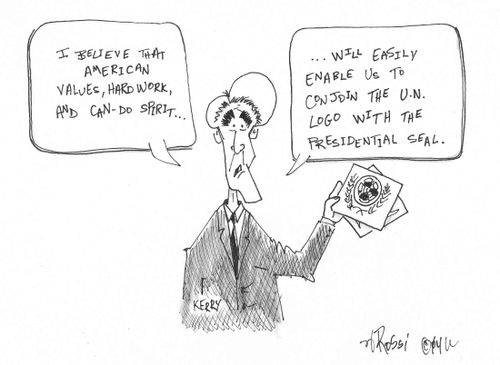 I BELIEVE THAT
AMERICAN
VALUES, HARD WORK,
AND CAN-DO SPIRIT...
... WILL EASILY
ENABLE US TO
CONJOIN THE U.N.
LOGO WITH THE
PRESIDENTIAL SEAL.
KERRY
ROSSI